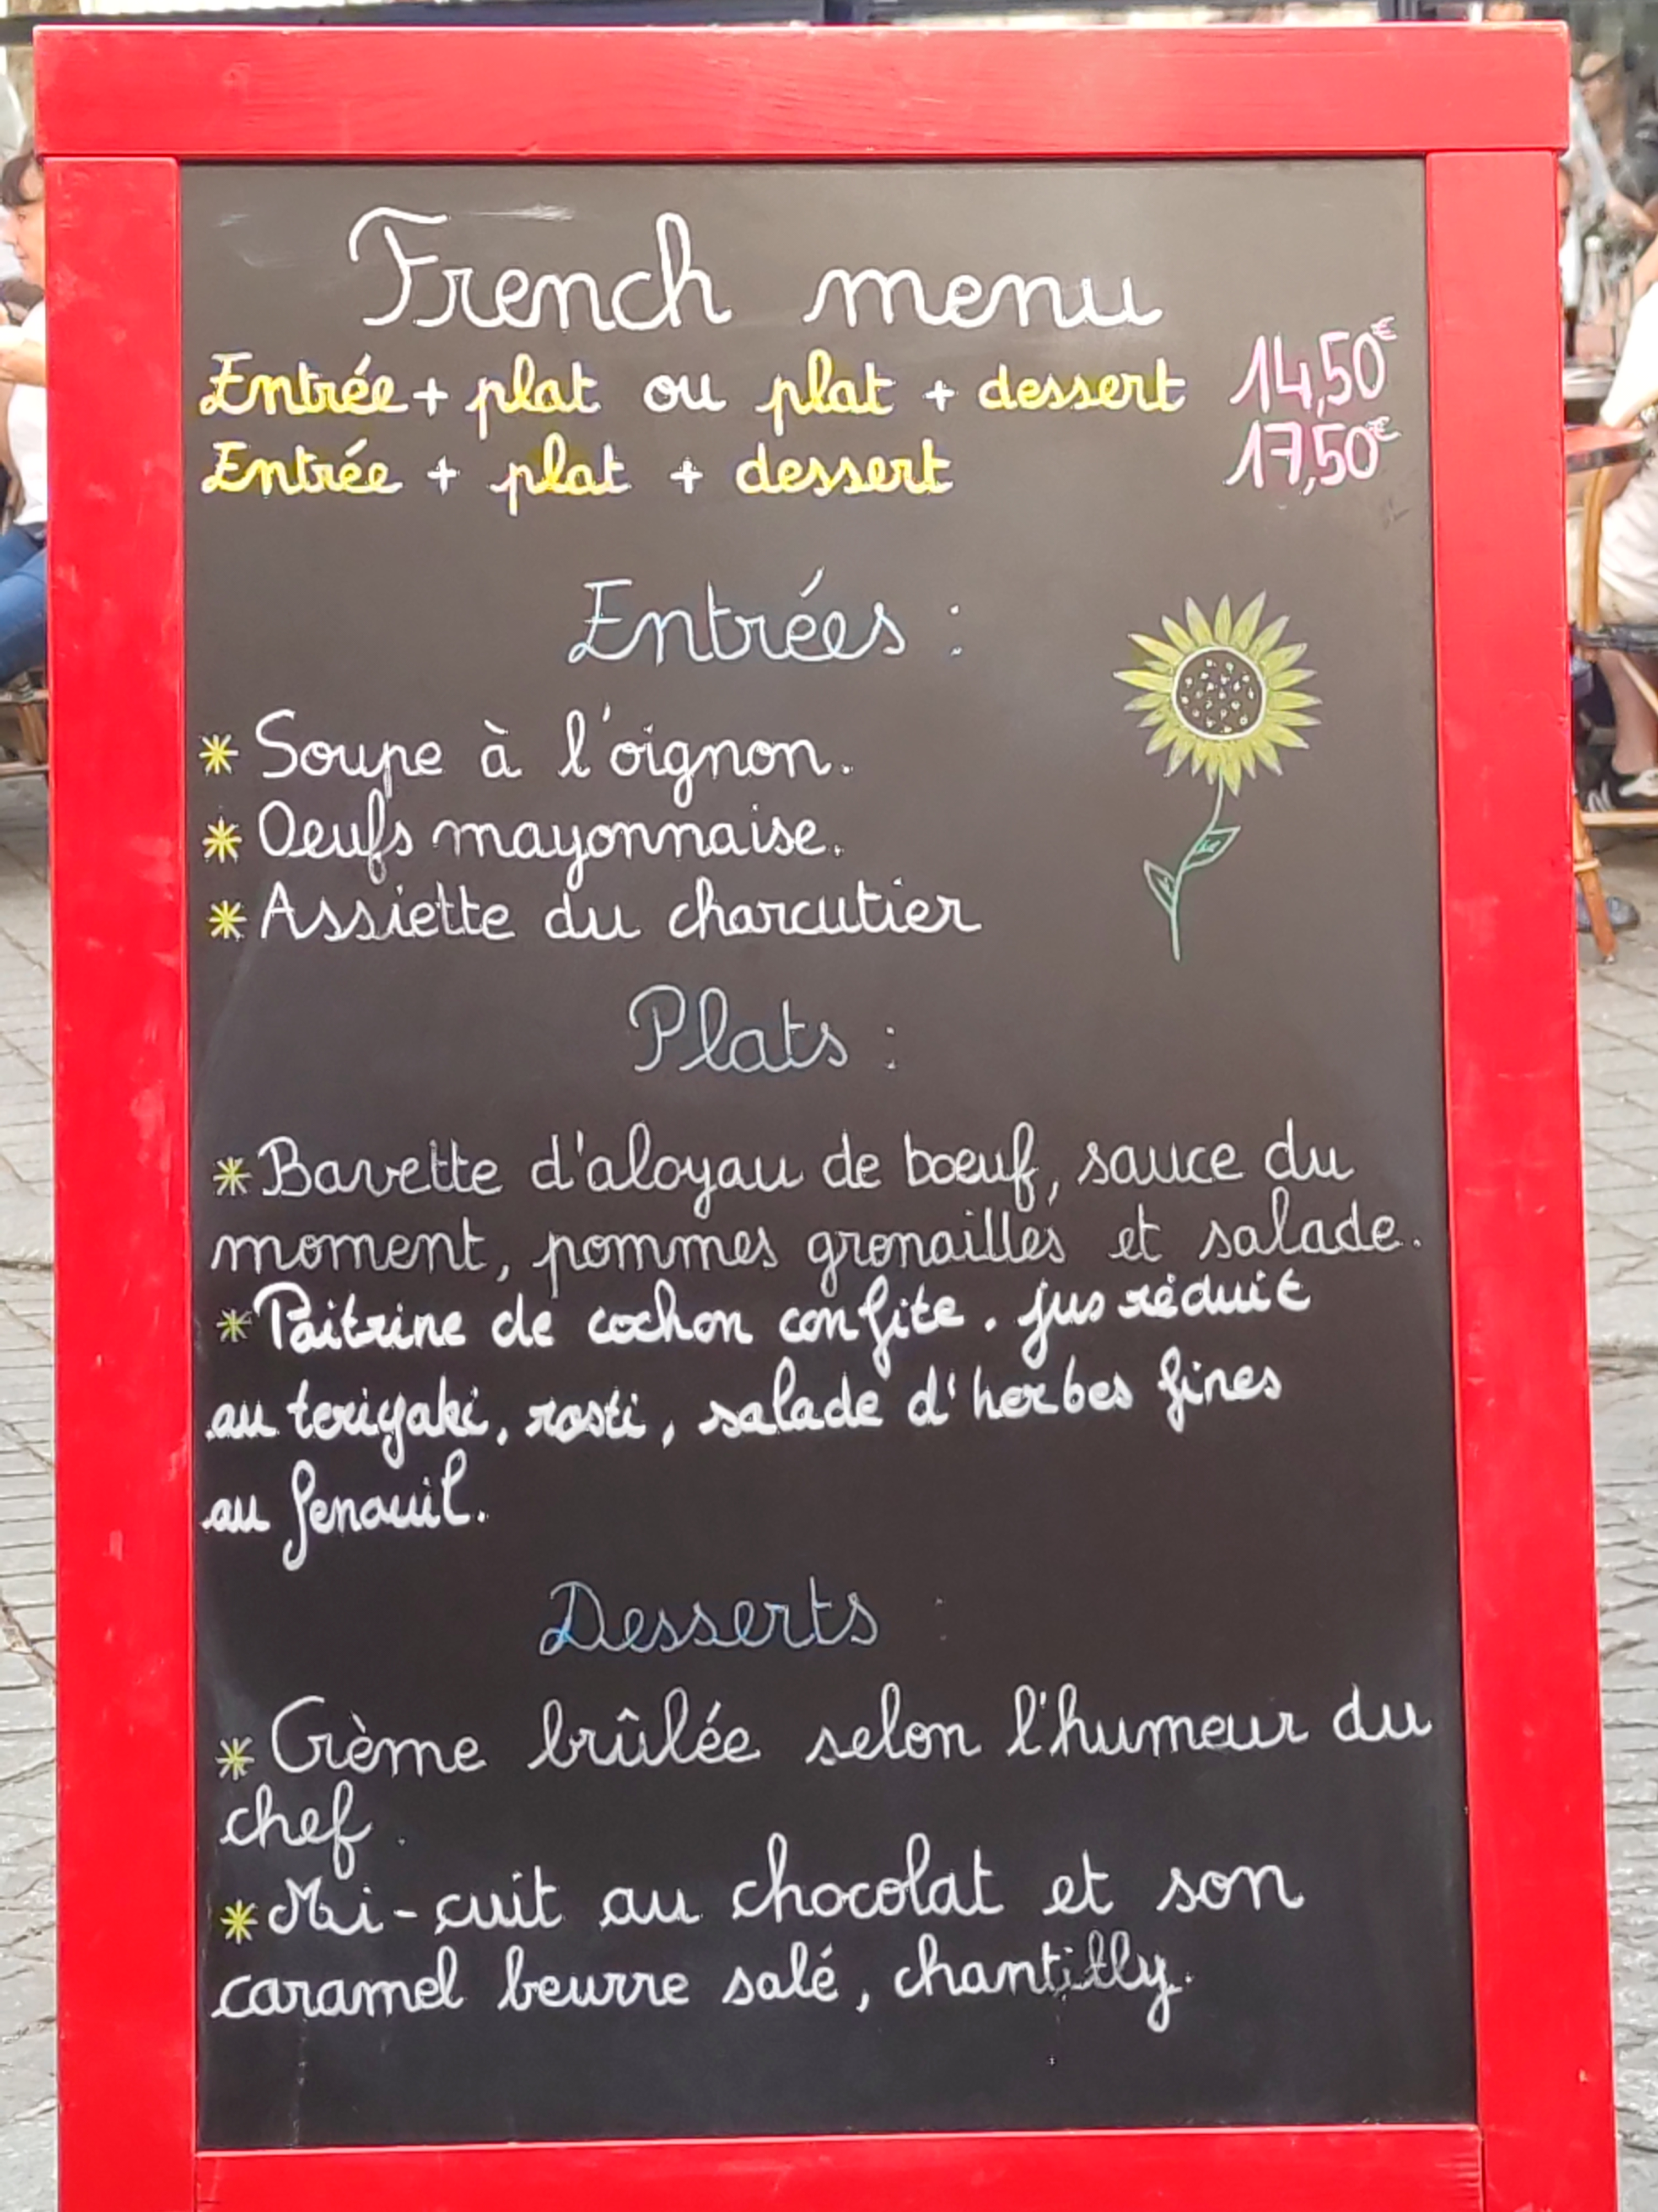 French menu
Entrée + plat ou plat + dessert 14,50€
Entrée + plat + dessert 17,50€
Entrées :
* Soupe à l'oignon.
* Oeufs mayonnaise.
* Assiette du charcutier
Plats :
* Bavette d'aloyau de bœuf, sauce du
moment, pommes grenailles et salade.
* Poitrine de cochon confite. jus réduit
au teriyaki, rosti, salade d'herbes fines
au fenouil.
Desserts :
* Crème brûlée selon l'humeur du
chef.
* Mi-cuit au chocolat et son
caramel beurre salé, chantilly.